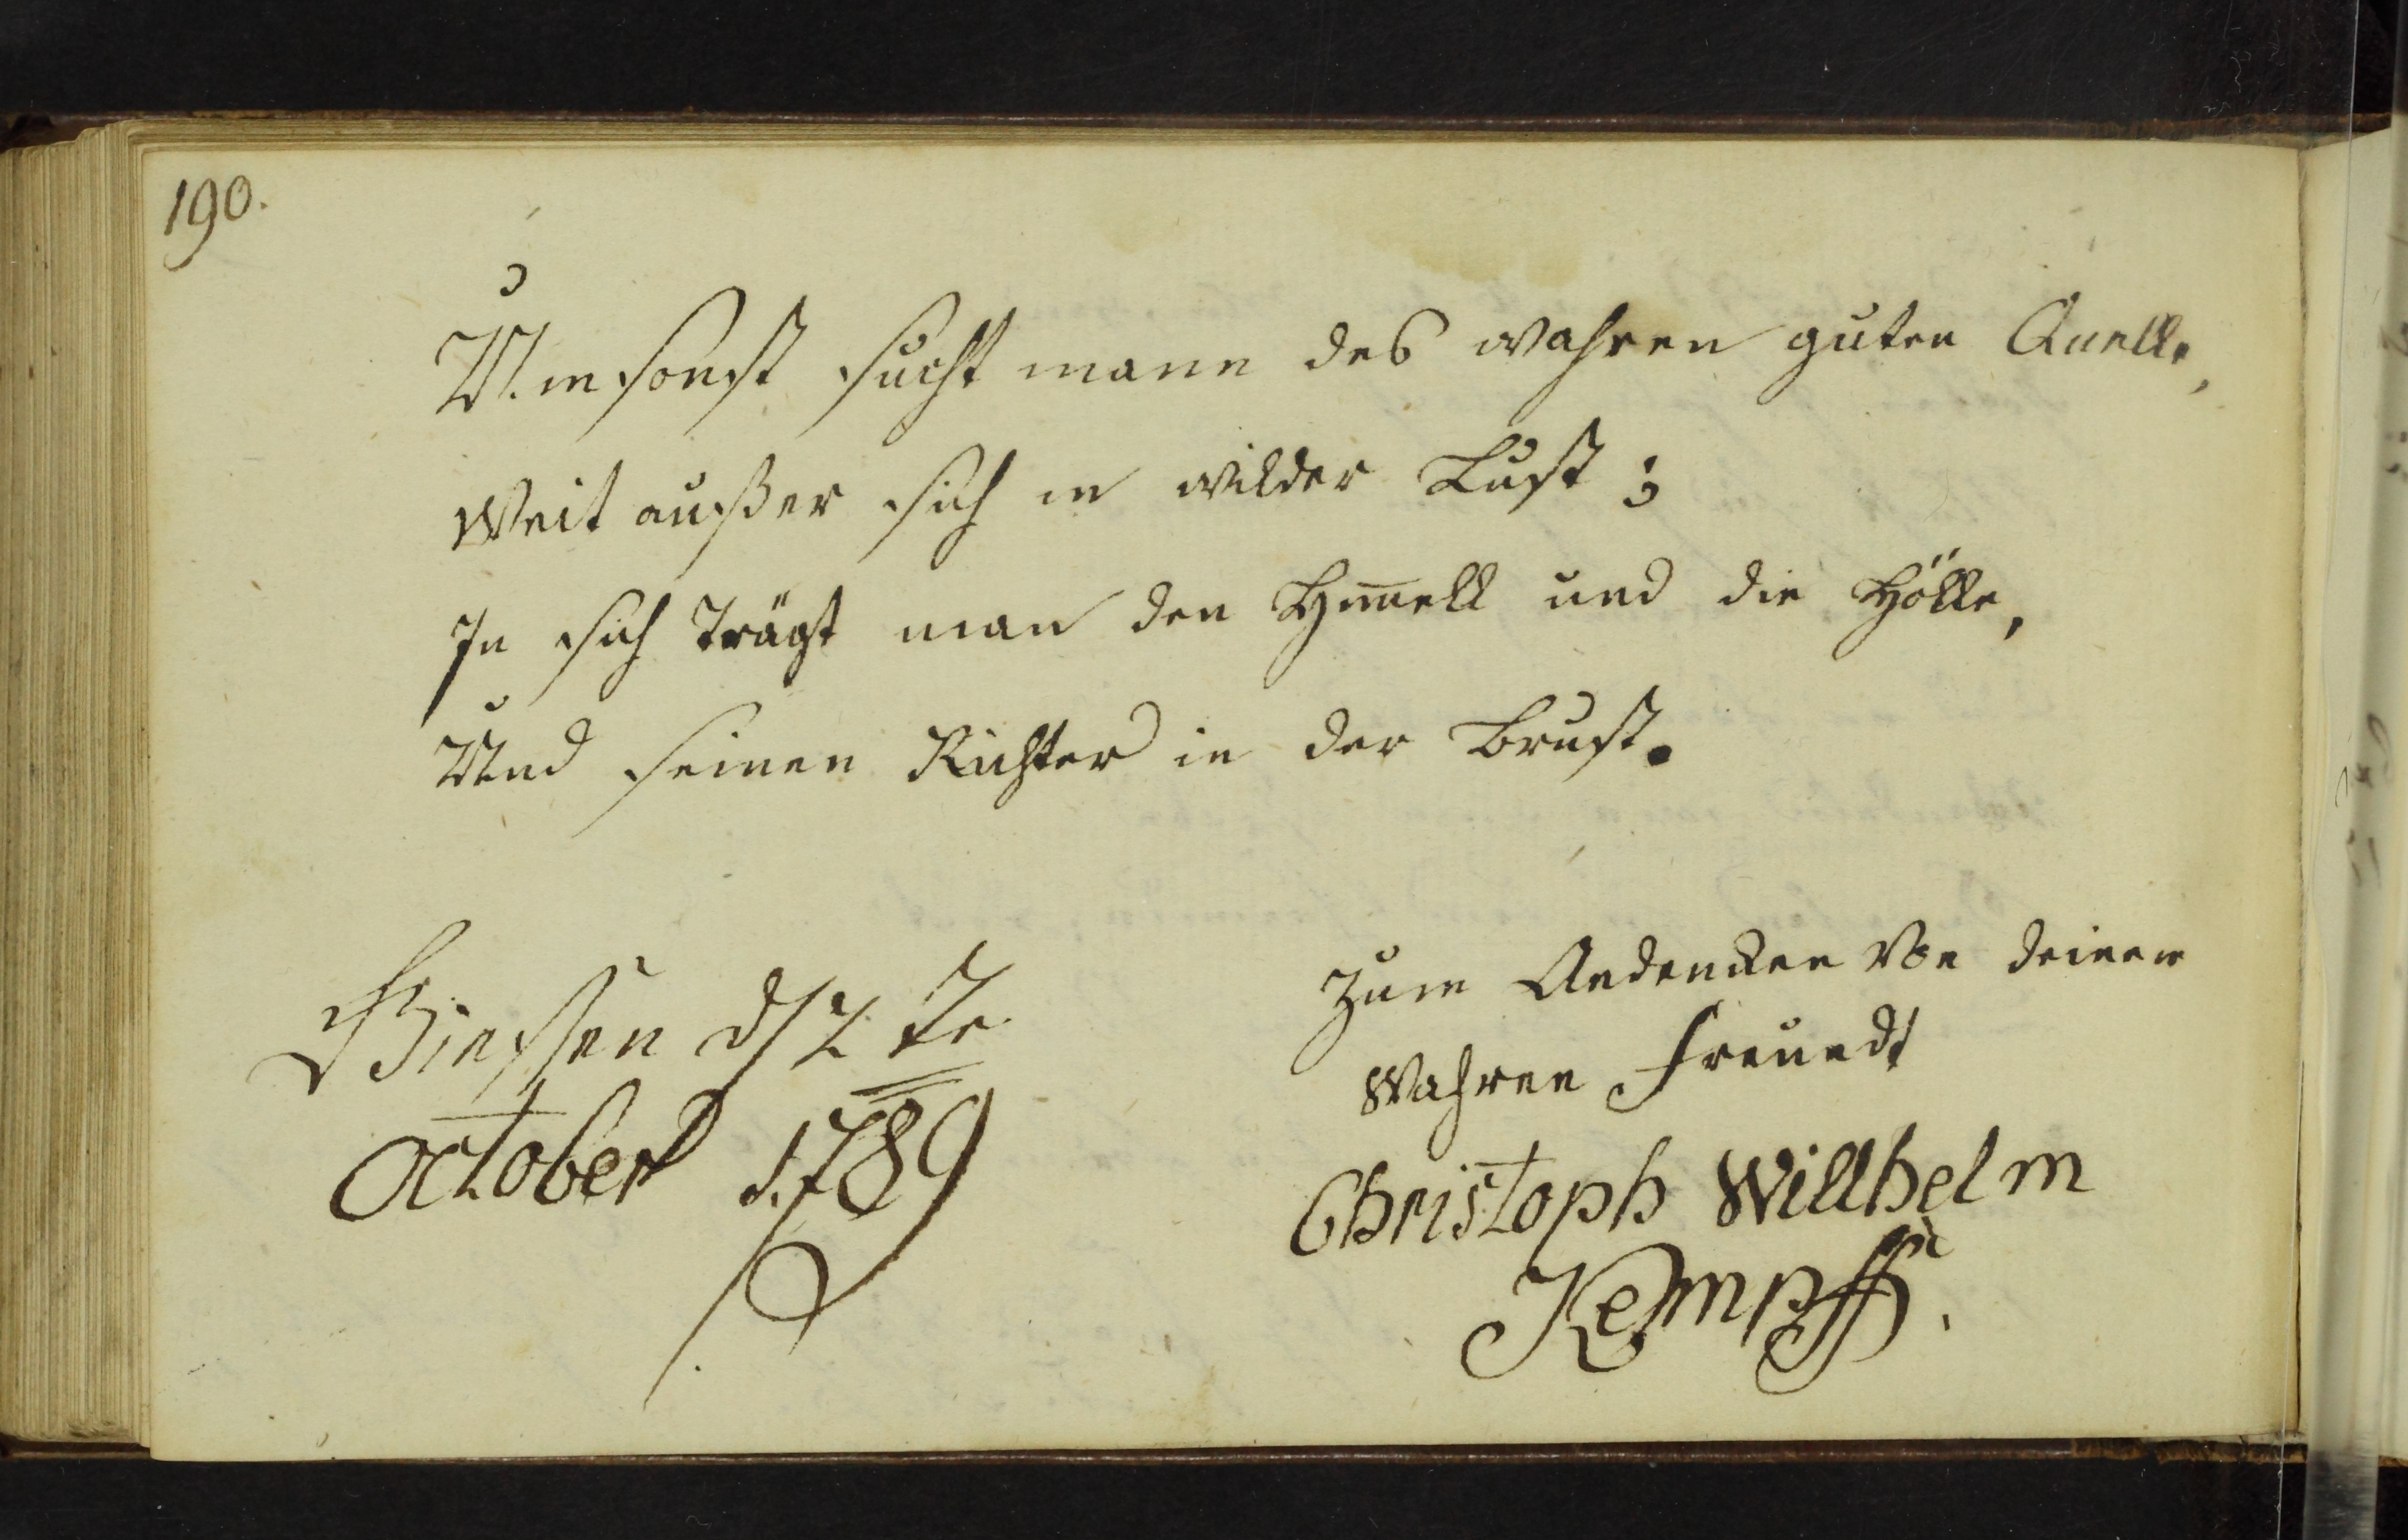 190.
Umsonst sucht mann des wahren guten Quelle,
Weit außer sich in wilder Lust;
In sich trägt man den Himell und die Hölle,
Und seinen Richter in der Brust.
Giessen d 12 te
October 1789
Zum Andencken Von deinem
Wahren Freundt
Christoph Willhelm
Kempff.